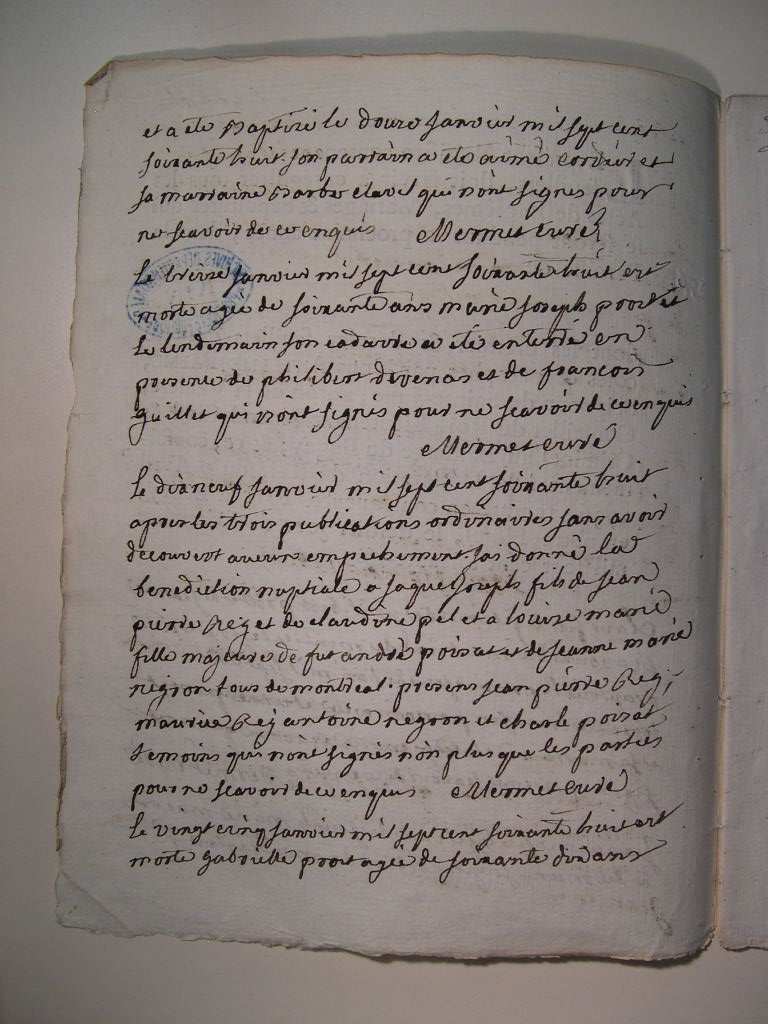 et a ete Baptizé le douze janvier mil sept cent
soixante huit. son parrain a ete aimé cordier et
sa marraine Barbe clavel qui n'ont signes pour
ne scavoir de ce enquis Mermet curé
Le treize janvier mil sept cent soixante huit est
morte agée de soixante ans marie joseph poort et
Le lendemain son cadavre a eté enterré en
presence de philibert devenas et de francois
guillet qui n'ont signés pour ne scavoir de ce enquis
Mermet curé
Le dixneuf janvier mil sept cent soixante huit
apres les trois publications ordinaires sans avoir
decouvert aucun empechement. jai donné la
benediction nuptiale a jaque joseph fils de jean
pierre Rey et de claudine pel et a louise marie
fille majeure de fut andré poisat et de jeanne marie
negron tous de montreal. presens jean pierre Rey,
maurice Rey antoine negron et charle poisat
temoins qui n'ont signés non plus que les parties
pour ne scavoir de ce enquis Mermet curé
le vingt cinq janvier mil sept cent soixante huit est
morte gabrielle poort agée de soixante dix ans